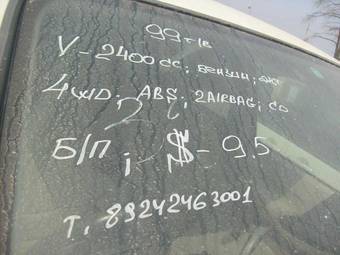 99 г/в
V-2400 CC; БЕНЗИН;
4WD; ABS; 2AIRBAG; CD
Б/П; $-9.5
Т. 89242463001